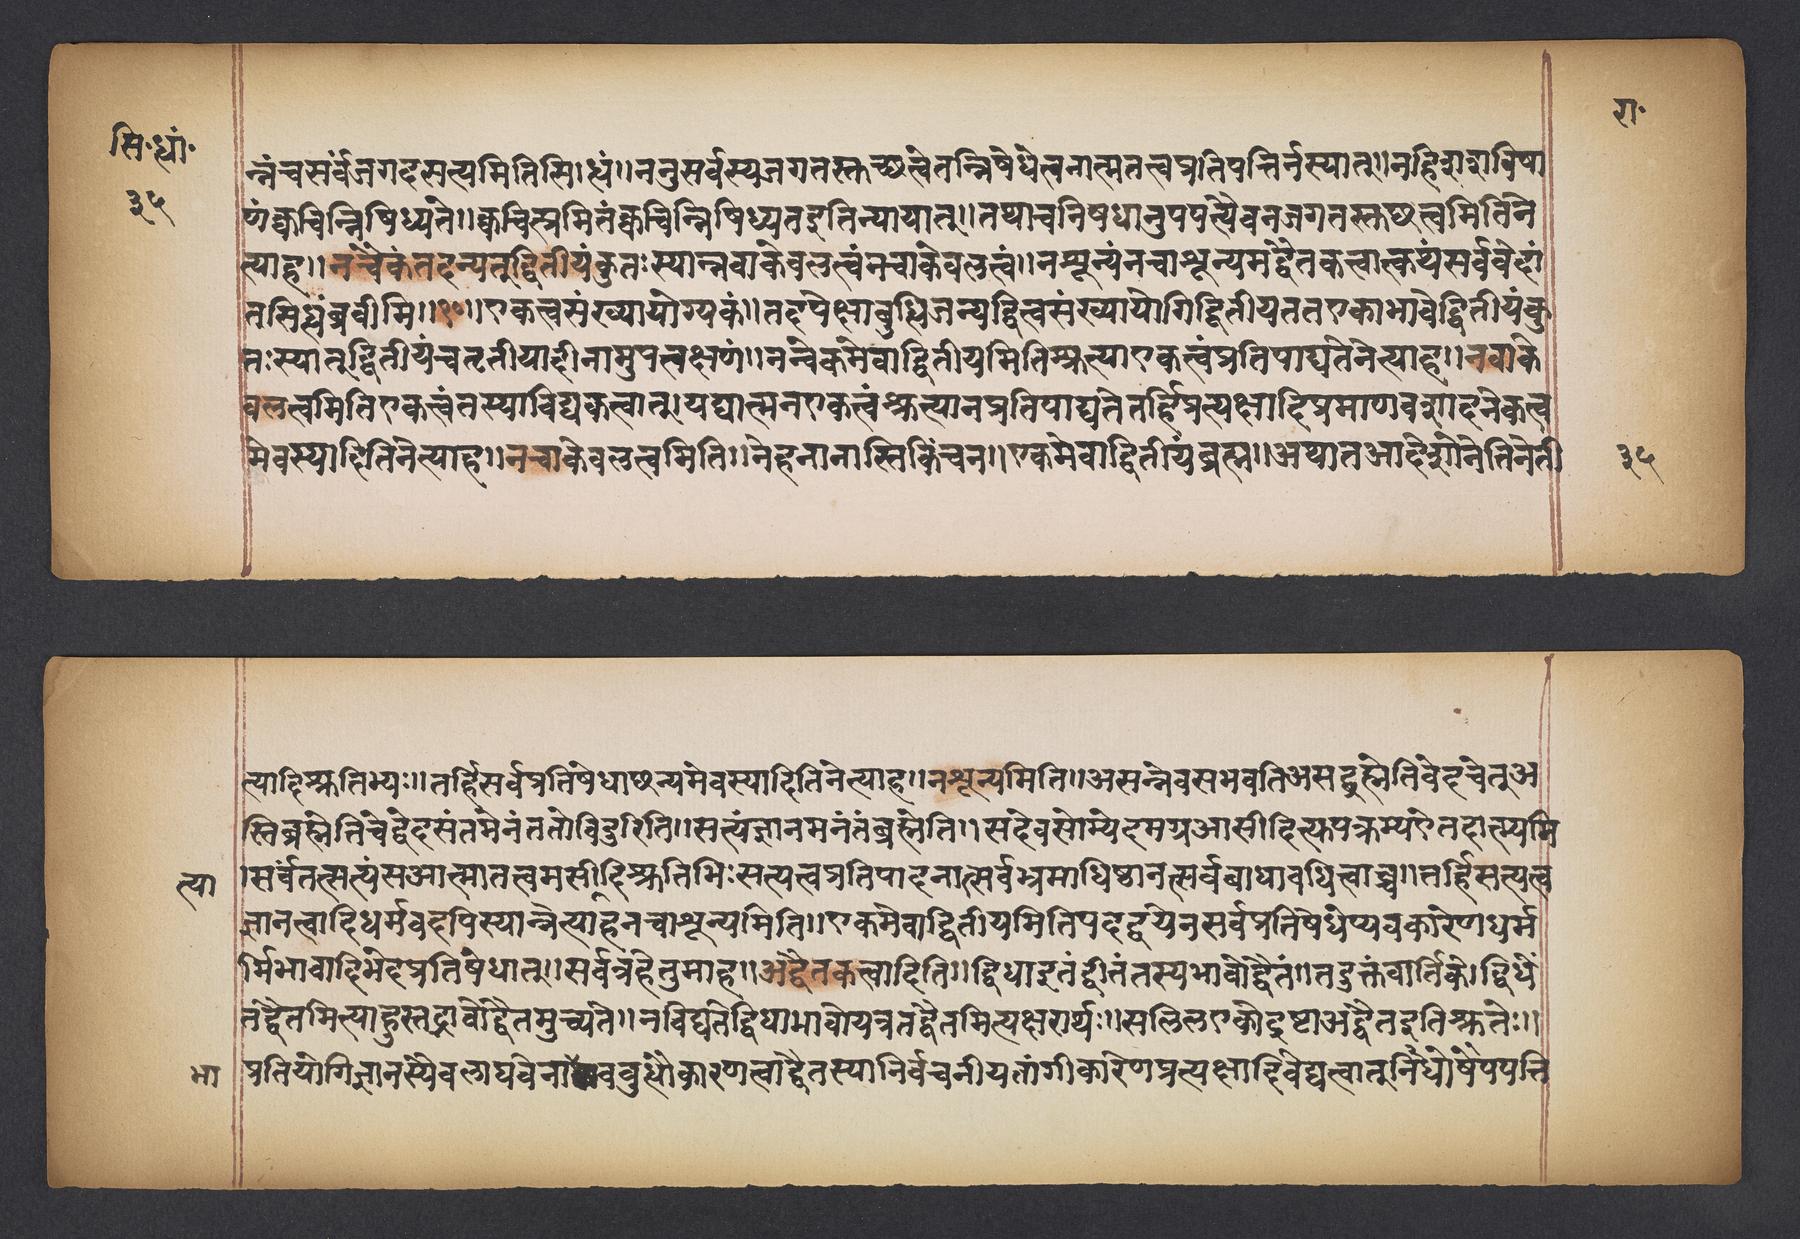 सि॰द्धां॰
३५
रा॰
न्नंच सर्वं जगदसत्यमितिसिद्धं ॥ ननु सर्वस्य जगतस्तुच्छत्वे तन्निषेधेत्वनात्मतत्त्वप्रतिपत्तिर्नस्यात् ॥ नहि शशविषा
णं क्वचिन्निषिध्यते ॥ क्वचित्प्रमितं क्वचिन्निषिध्यत इति न्यायात् ॥ तथाच निषेधानुपपत्त्यैव न जगतस्तुछत्वमिति ने
त्याह ॥ न चैकं तदन्यत् द्वितीयं कुतः स्यान्नवा केवलत्वं नचाकेवलत्वं ॥ न शून्यं नचाशून्यमद्वैतकत्वात्कथं सर्ववेदां
तसिद्धं ब्रवीमि ॥ १० ॥ एकत्वसंख्यायोग्यकं ॥ तदपेक्षाबुद्धिजन्यद्वित्वसंख्यायोगि द्वितीयं तत एकाभावे द्वितीयं कु
तः स्यात् द्वितीयंच तृतीयादीनामुपलक्षणं ॥ नन्वेकमेवाद्वितीयमिति श्रुत्या एकत्वं प्रतिपाद्यते नेत्याह ॥ नवा के
वलत्वमिति एकत्वं तस्याविद्यकत्वात् । यद्यात्मन एकत्वं श्रुत्या न प्रतिपाद्यते तर्हि प्रत्यक्षादिप्रमाणवशादनेकत्व
मेव स्यादिति नेत्याह ॥ नचाकेवलत्वमिति ॥ नेह नानास्ति किंचन ॥ एकमेवाद्वितीयं ब्रह्म ॥ अथात आदेशो नेति नेती
३५
त्यादि श्रुतिभ्यः ॥ तर्हि सर्वप्रतिषेधाछून्यमेव स्यादिति नेत्याह ॥ न शून्यमिति ॥ असन्नेव स भवति असद्ब्रह्मेति वेद चेत् अ
स्ति ब्रह्मेति चेद्वेद संतमेनं ततो विदुरिति ॥ सत्यं ज्ञानमनंतं ब्रह्मेति ॥ सदेव सोम्येदमग्र आसीदित्युपक्रम्य ऐतदात्म्यमि
त्या
। सर्वं तत्सत्यं स आत्मा तत्त्वमसीदि श्रुतिभिः सत्यत्वप्रतिपादनात्सर्वभ्रमाधिष्ठानत्सर्वबाधावधित्वाच्च ॥ तर्हि सत्यत्व
ज्ञानत्वादिधर्मवदपि स्यान्नेत्याह नचाशून्यमिति ॥ एकमेवाद्वितीयमिति पदद्वयेन सर्वप्रतिषेधेप्येवकारेण धर्म
र्मिभावादिभेदप्रतिषेधात् ॥ सर्वत्र हेतुमाह ॥ अद्वैतकत्वादिति ॥ द्विधा इतं द्वीतं तस्य भावो द्वैतं ॥ तदुक्तं वार्तिके । द्विधे
तं द्वैतमित्याहुस्तद्भावो द्वैतमुच्यते ॥ न विद्यते द्विधाभावो यत्र तद्वैतमित्यक्षरार्थः ॥ सलिल एको दृष्टा अद्वैत इति श्रुतेः ॥
भा
प्रतियोगिज्ञानस्यैव लाघवेनावबुद्धौ कारणत्वाद्वैतस्यानिर्वचनीयतांगीकारेण प्रत्यक्षादिवेद्यत्वात् निधेषोपपत्ति